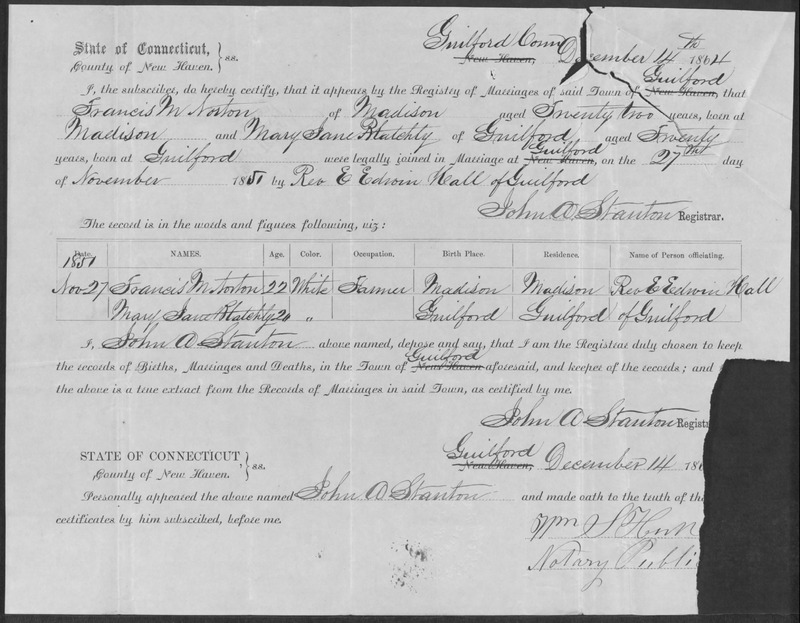 Guilford Conn December 14th 1864
State of Connecticut, } ss. New Haven,
County of New Haven.
Guilford
I, the subscriber, do hereby certify, that it appears by the Registry of Marriages of said Town of New Haven, that
Francis M Norton of Madison aged Twenty two years, born at
Madison and Mary Jane Blatchly of Guilford aged Twenty
Guilford
years, born at Guilford were legally joined in Marriage at New Haven, on the 27th day
of November 1851 by Rev E Edwin Hall of Guilford
John A Stanton Registrar.
The record is in the words and figures following, viz:
Date. NAMES. Age. Color. Occupation. Birth Place. Residence. Name of Person officiating.
1851
Nov 27 Francis M Norton 22 White Farmer Madison Madison Rev E Edwin Hall
Mary Jane Blatchly 20 " Guilford Guilford of Guilford
I, John A Stanton above named, depose and say, that I am the Registrar duly chosen to keep
Guilford
the records of Births, Marriages and Deaths, in the Town of New Haven aforesaid, and keeper of the records; and
the above is a true extract from the Records of Marriages in said Town, as certified by me.
John A Stanton Registr
Guilford
STATE OF CONNECTICUT, } ss. New Haven, December 14 186
County of New Haven.
Personally appeared the above named John A Stanton and made oath to the truth of th
certificates by him subscribed, before me.
Wm S
Notary Public